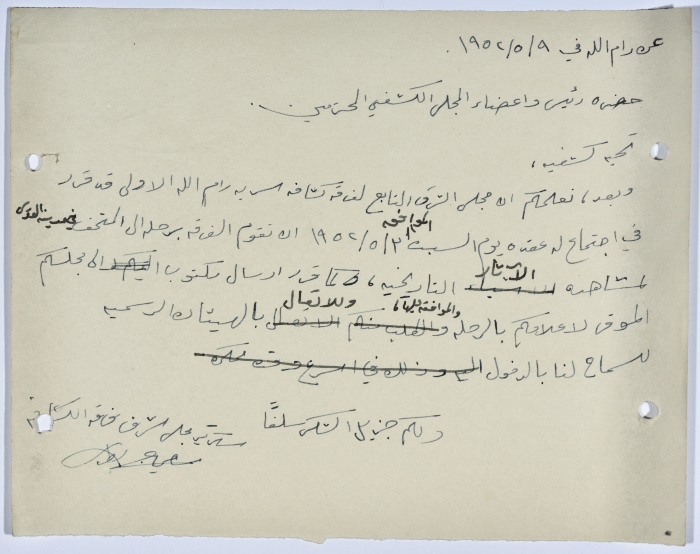 عن رام الله في ١٩٥٢/٥/٩.
حضرة رئيس واعضاء المجلس الكشفي المحترمين.
تحيه كشفيه،
وبعد، نعلمكم ان مجلس الشرف التابع لفرقة كشافه سريه رام الله الاولى قد قرر
في اجتماع له عقده يوم السبت الموافق ١٩٥٢/٥/٣ ان تقوم الفرقه برحله الى المتحف في مدينة القدس
لمشاهدة الآثار التاريخيه، كما قرر ارسال مكتوب الى مجلسكم
الموقر لاعلامكم بالرحله والموافقة عليها، وللاتصال بالهيئات الرسميه
للسماح لنا بالدخول وذلك في اسرع وقت ممكن
ولكم جزيل الشكر سلفًا
سكرتير مجلس الشرف